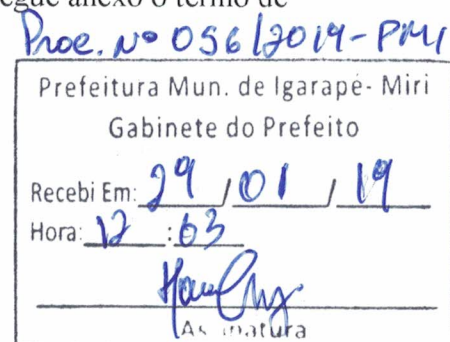 egue anexo o termo de
Proc. Nº 056/2019-PMI
Prefeitura Mun. de Igarapé- Miri
Gabinete do Prefeito
Recebi Em: 29/01/19
Hora: 12:03
Assinatura